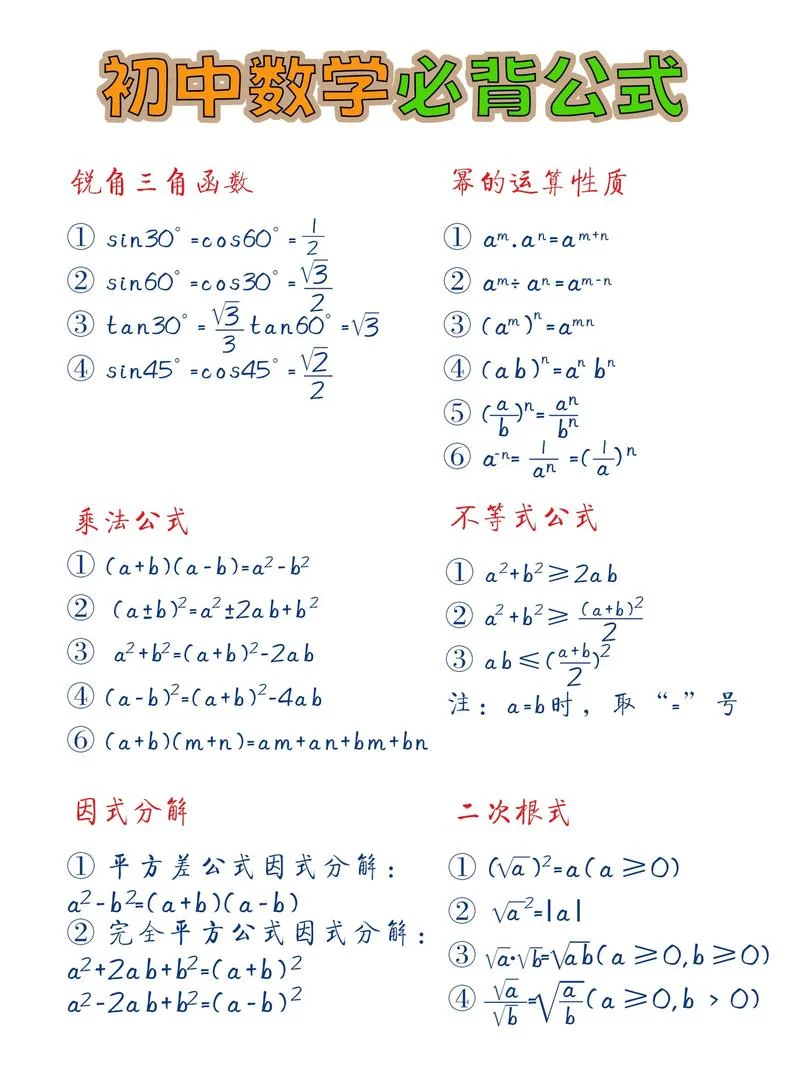 初中数学必背公式
锐角三角函数
① sin30°=cos60°=1/2
② sin60°=cos30°=√3/2
③ tan30°=√3/3 tan60°=√3
④ sin45°=cos45°=√2/2
幂的运算性质
① aᵐ.aⁿ=aᵐ⁺ⁿ
② aᵐ÷aⁿ=aᵐ⁻ⁿ
③ (aᵐ)ⁿ=aᵐⁿ
④ (ab)ⁿ=aⁿbⁿ
⑤ (a/b)ⁿ=aⁿ/bⁿ
⑥ a⁻ⁿ=1/aⁿ=(1/a)ⁿ
乘法公式
① (a+b)(a-b)=a²-b²
② (a±b)²=a²±2ab+b²
③ a²+b²=(a+b)²-2ab
④ (a-b)²=(a+b)²-4ab
⑥ (a+b)(m+n)=am+an+bm+bn
不等式公式
① a²+b²≥2ab
② a²+b²≥(a+b)²/2
③ ab≤(a+b/2)²
注：a=b时，取“=”号
因式分解
① 平方差公式因式分解：
a²-b²=(a+b)(a-b)
② 完全平方公式因式分解：
a²+2ab+b²=(a+b)²
a²-2ab+b²=(a-b)²
二次根式
① (√a)²=a(a≥0)
② √a²=|a|
③ √a·√b=√ab(a≥0,b≥0)
④ √a/√b=√(a/b)(a≥0,b>0)